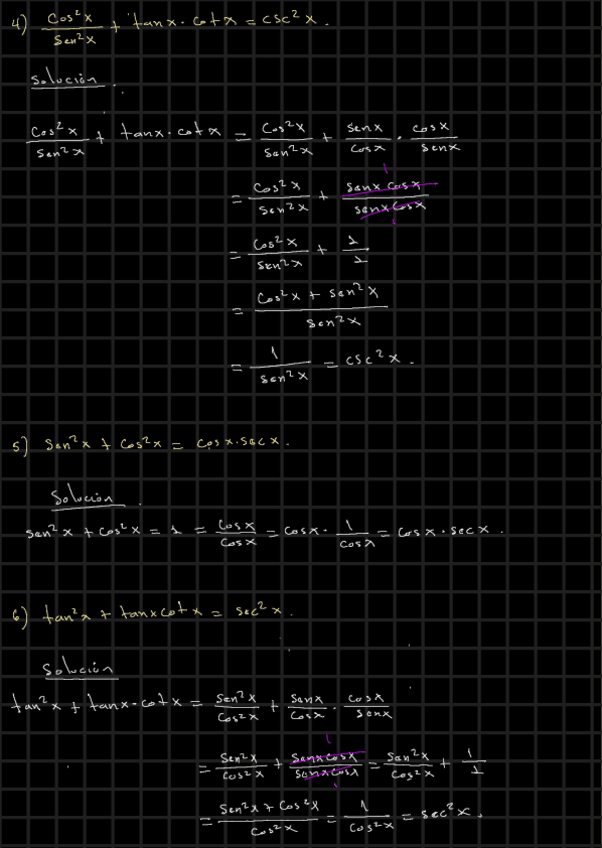 4) Cos²x/Sen²x + tanx · cotx = csc²x.
Solución.
Cos²x/Sen²x + tanx · cotx = Cos²x/Sen²x + Senx/Cosx · Cosx/Senx
= Cos²x/Sen²x + Senx Cosx/Senx Cosx 1 1
= Cos²x/Sen²x + 1/1
= Cos²x + Sen²x/Sen²x
= 1/Sen²x = csc²x.
5) Sen²x + Cos²x = Cosx·Secx.
Solución.
Sen²x + Cos²x = 1 = Cosx/Cosx = Cosx · 1/Cosx = Cosx · Secx.
6) tan²x + tanx cotx = sec²x.
Solución
tan²x + tanx · cotx = Sen²x/Cos²x + Senx/Cosx · Cosx/Senx
= Sen²x/Cos²x + Senx Cosx/Senx Cosx 1 1 = Sen²x/Cos²x + 1/1
= Sen²x + Cos²x/Cos²x = 1/Cos²x = sec²x.